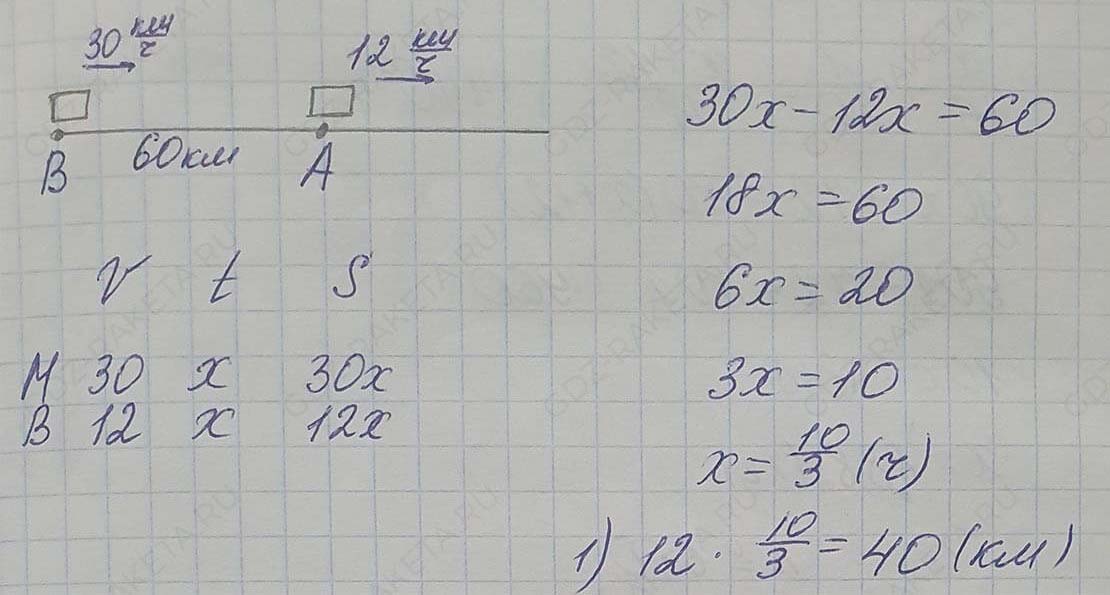 30 км/ч 12 км/ч
B 60км A
V t S
М 30 x 30x
В 12 x 12x
30x - 12x = 60
18x = 60
6x = 20
3x = 10
x = 10/3 (ч)
1) 12 · 10/3 = 40 (км)
GDZ-RAKETA.RU